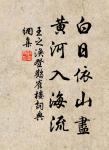 白日依山盡
黄河入海流
王之渙登鸛雀樓詞典
網集